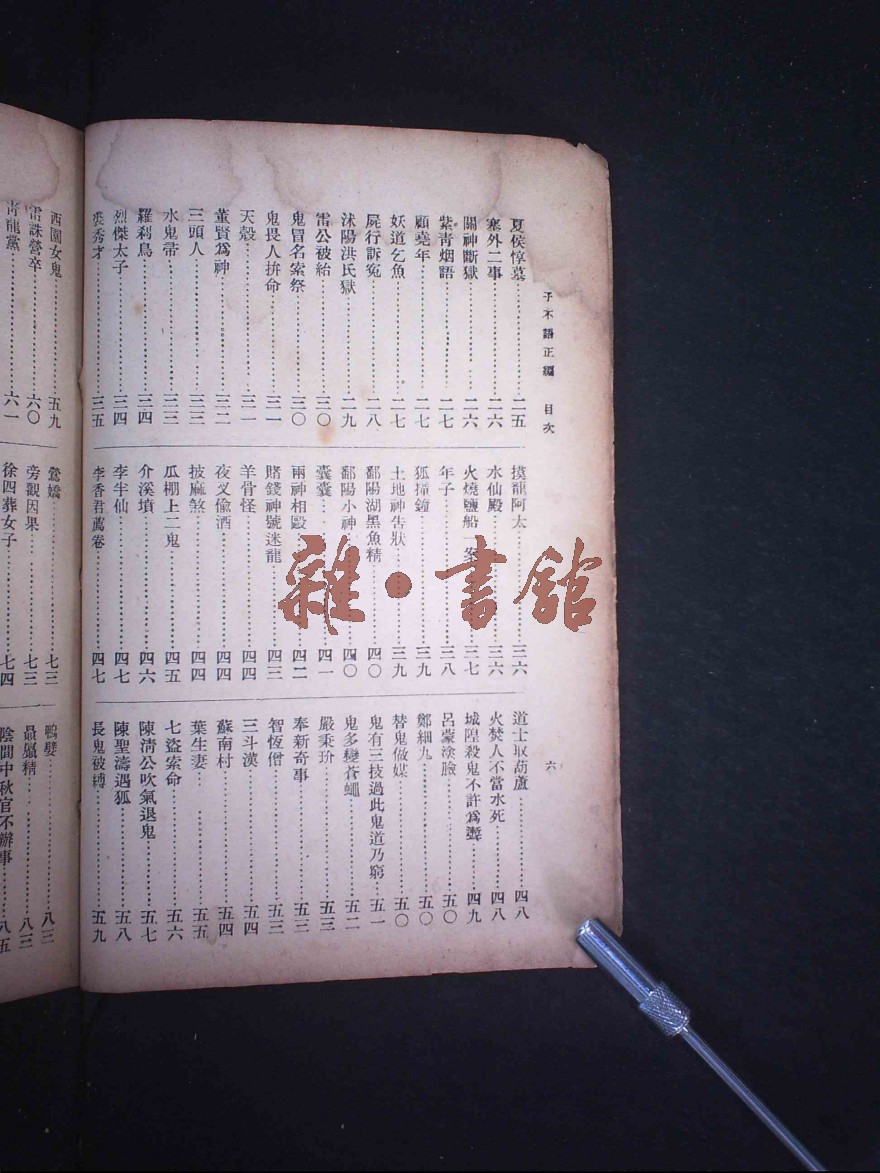 子不語正編 目次
六
夏侯惇墓……二五
塞外二事……二六
關神斷獄……二六
紫青烟語……二七
顧堯年……二七
妖道乞魚……二七
屍行訴冤……二八
沭陽洪氏獄……二九
雷公被紿……三〇
鬼冒名索祭……三〇
鬼畏人拚命……三一
天殼……三一
董賢爲神……三二
三頭人……三三
水鬼帚……三三
羅刹鳥……三四
烈傑太子……三四
裘秀才……三五
摸龍阿太……三六
水仙殿……三六
火燒鹽船一案……三七
年子……三八
狐撞鐘……三九
土地神告狀……三九
鄱陽湖黑魚精……四〇
鄱陽小神……四〇
囊囊……四一
兩神相毆……四二
賭錢神號迷龍……四三
羊骨怪……四四
夜叉偸酒……四四
披麻煞……四四
瓜棚上二鬼……四五
介溪墳……四六
李半仙……四七
李香君薦卷……四七
道士取葫蘆……四八
火焚人不當水死……四八
城隍殺鬼不許爲聻……四九
呂蒙塗臉……五〇
鄭細九……五〇
替鬼做媒……五〇
鬼有三技過此鬼道乃窮……五一
鬼多變蒼蠅……五二
嚴秉玠……五三
奉新奇事……五三
智恆僧……五三
三斗漢……五四
蘇南村……五四
葉生妻……五五
七盜索命……五六
陳淸公吹氣退鬼……五七
陳聖濤遇狐……五八
長鬼被縛……五九
西園女鬼……五九
雷誅營卒……六〇
靑龍黨……六一
鶯嬌……七三
旁觀因果……七三
徐四葬女子……七四
鴨嬖……八三
贔屭精……八三
陰間中秋官不辦事……八五
雜·書館